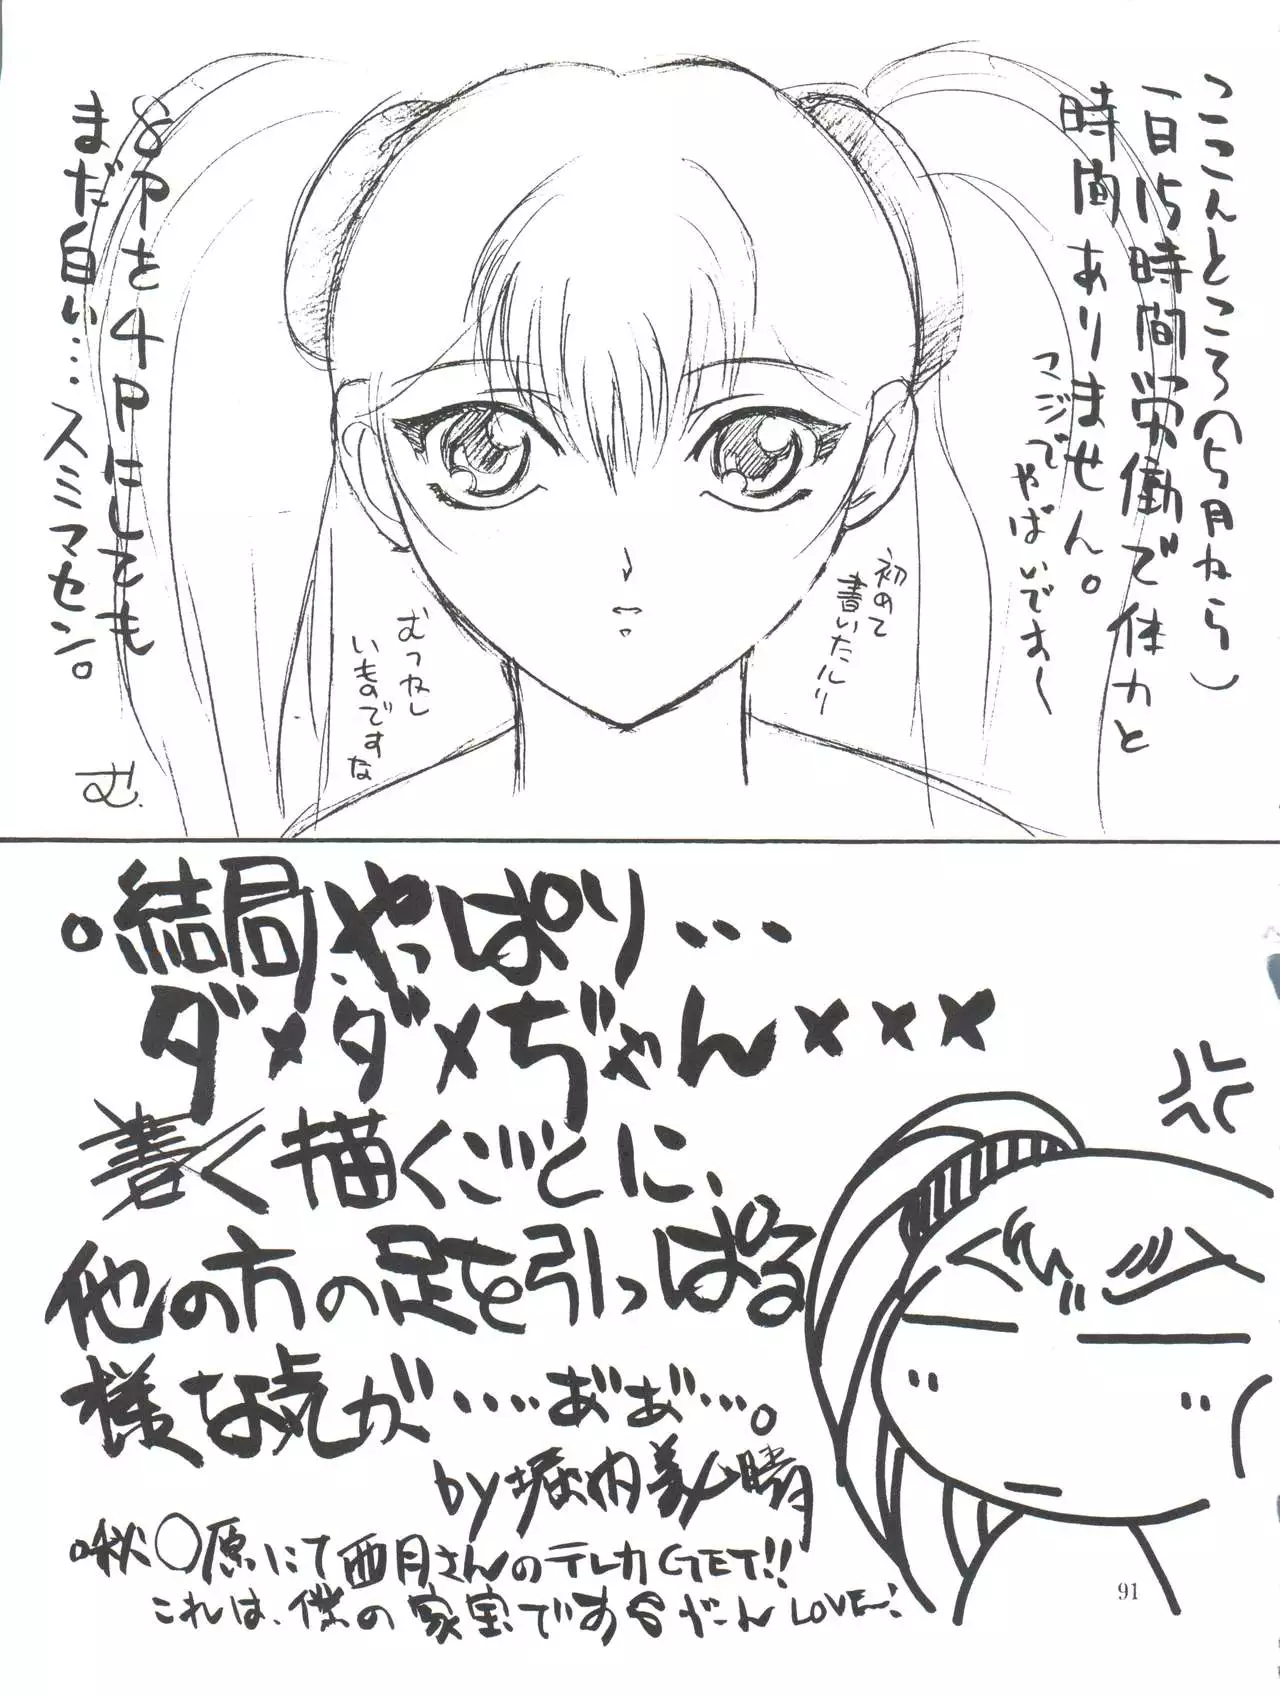 ここんところ(5月ねら)
一日15時間労働で体力と
時間ありません。
マジでやばいです〜
初めて
書いたルリ
むつかし
いものですな
8Pを4Pにしても
まだ白い…スミマセン。
む.
。結局、やっぱり…
ダメダメぢゃん×××
描くごとに、
他の方の足を引っぱる
様な気が……あぁあ…。
by 堀内美晴
・秋〇原にて西月さんのテレカGET!!
これは、僕の家宝である がーんLOVE〜!
91